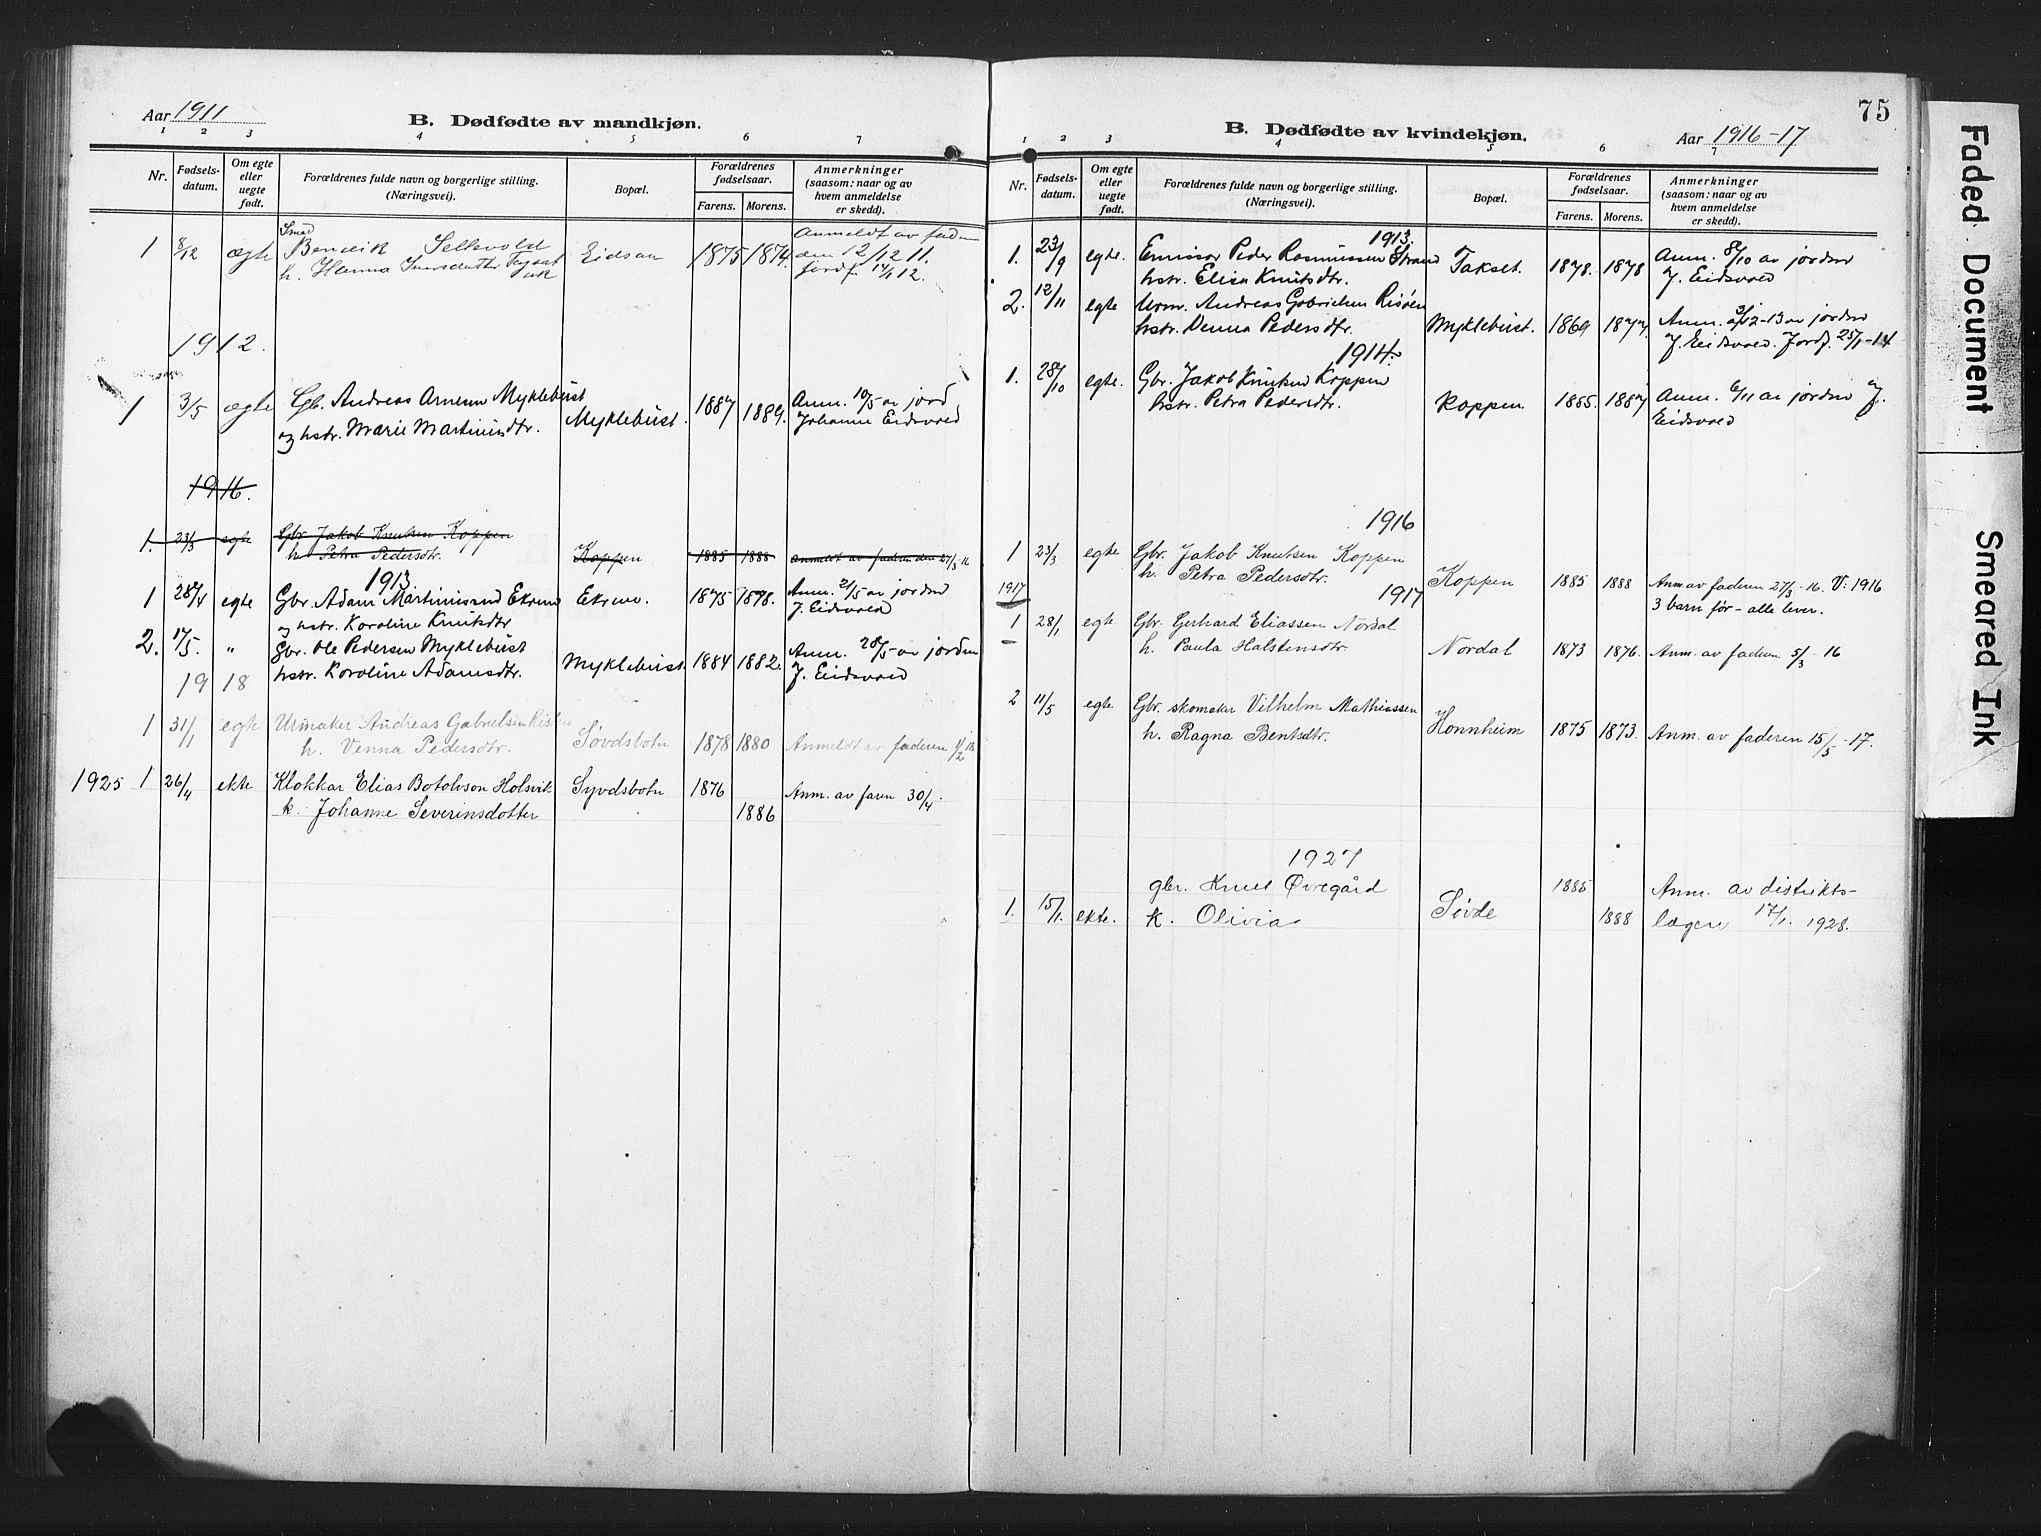 Aar 1911
B. Dødfødte av mandkjøn.
1 2 3 4 5 6 7
Nr. Fødsels-datum. Om egte eller uegte født. Forældrenes fulde navn og borgerlige stilling. (Næringsvei). Bopæl. Forældrenes fødselsaar. Farens. Morens. Anmerkninger (saasom: naar og av hvem anmeldelse er skedd).
Smed
1 8/12 ægte Bendik Selkvold Eidsaa 1875 1874. Anmeldt av fad
h. Hanna den 12/12 11.
jordf. 14/1 12.
1912.
1 3/5 ægte Gb. Andreas Arnesen Myklebust Myklebust. 1887 1889. Anm. 10/5 av jord
og hstr. Marie Martinusdtr. Johanne Eidsvoed
1916.
1. 23/3 egte Gbr. Jakob Knutsen Koppen
h. Petra Pedersdtr. Koppen 1885 1888 anmeldt av faderen den 27/3-16
1913.
1 28/4 egte Gbr. Adam Martinussen Ekrem Ekrem. 1875 1878. Anm. 2/5 av jordm
og hstr. Karoline Knutsdtr J. Eidsvoed
2. 17/5. " Gbr. Ole Pedersen Myklebust Myklebust. 1884 1882. Anm. 28/5 av jordm
hstr. Karoline Adamsdtr. J. Eidsvoed
1918
1 31/1 egte Urmaker Andreas Gabrielsen Risøen
h. Venna Pedersdtr. Søvdsbotn 1878 1880 Anmeldt av faderen 1/2 18
1925 1 26/4 ekte Klokkar Elias Botolvson Holsvik Syvdsbotn 1876 Anm. av faren 30/4.
k. Johanne Severinsdotter 1886
75
B. Dødfødte av kvindekjøn.
Aar 1916-17
1 2 3 4 5 6 7
Nr. Fødsels-datum. Om egte eller uegte født. Forældrenes fulde navn og borgerlige stilling. (Næringsvei). Bopæl. Forældrenes fødselsaar. Farens. Morens. Anmerkninger (saasom: naar og av hvem anmeldelse er skedd).
1913.
1. 23/9 egte. Emissær Peder Rasmussen Strand Takset. 1878. 1878 Anm. 8/10 av jordm
hstr. Elisa Knutsdtr. J. Eidsvoed
2. 12/11 egte Urm. Andreas Gabrielsen Risøen Myklebust. 1869 1877. Anm. 3/12-13 av jordm
hstr. Venna Pedersdtr. J. Eidsvoed. Jordf. 25/1-14
1914.
1. 28/10 egte. Gbr. Jakob Knutsen Koppen Koppen. 1885. 1887 Anm. 6/11 av jordm J.
hstr. Petra Pedersdtr. Eidsvoed
1916
1 23/3 egte Gbr. Jakob Knutsen Koppen
h. Petra Pedersdtr. Koppen 1885 1888 Anm. av faderen 27/3-16. V: 1916
3 barn før - alle lever.
1917 1917
1 28/1 egte Gbr. Gerhard Eliassen Nordal
h. Paula Halstensdtr. Nordal 1873 1876. Anm. av faderen 5/3-16
2 11/5 egte Gbr. skomaker Vilhelm Mathiassen
h. Ragna Bentsdtr. Honnheim 1875 1873. Anm. av faderen 15/5-17.
1927
gbr. Knut Øvregård 1885 Anm. av distrikts-
1. 15/1. ekte. k. Olivia Sövde 1888 lægen 17/1. 1928.
Faded Document Smeared Ink